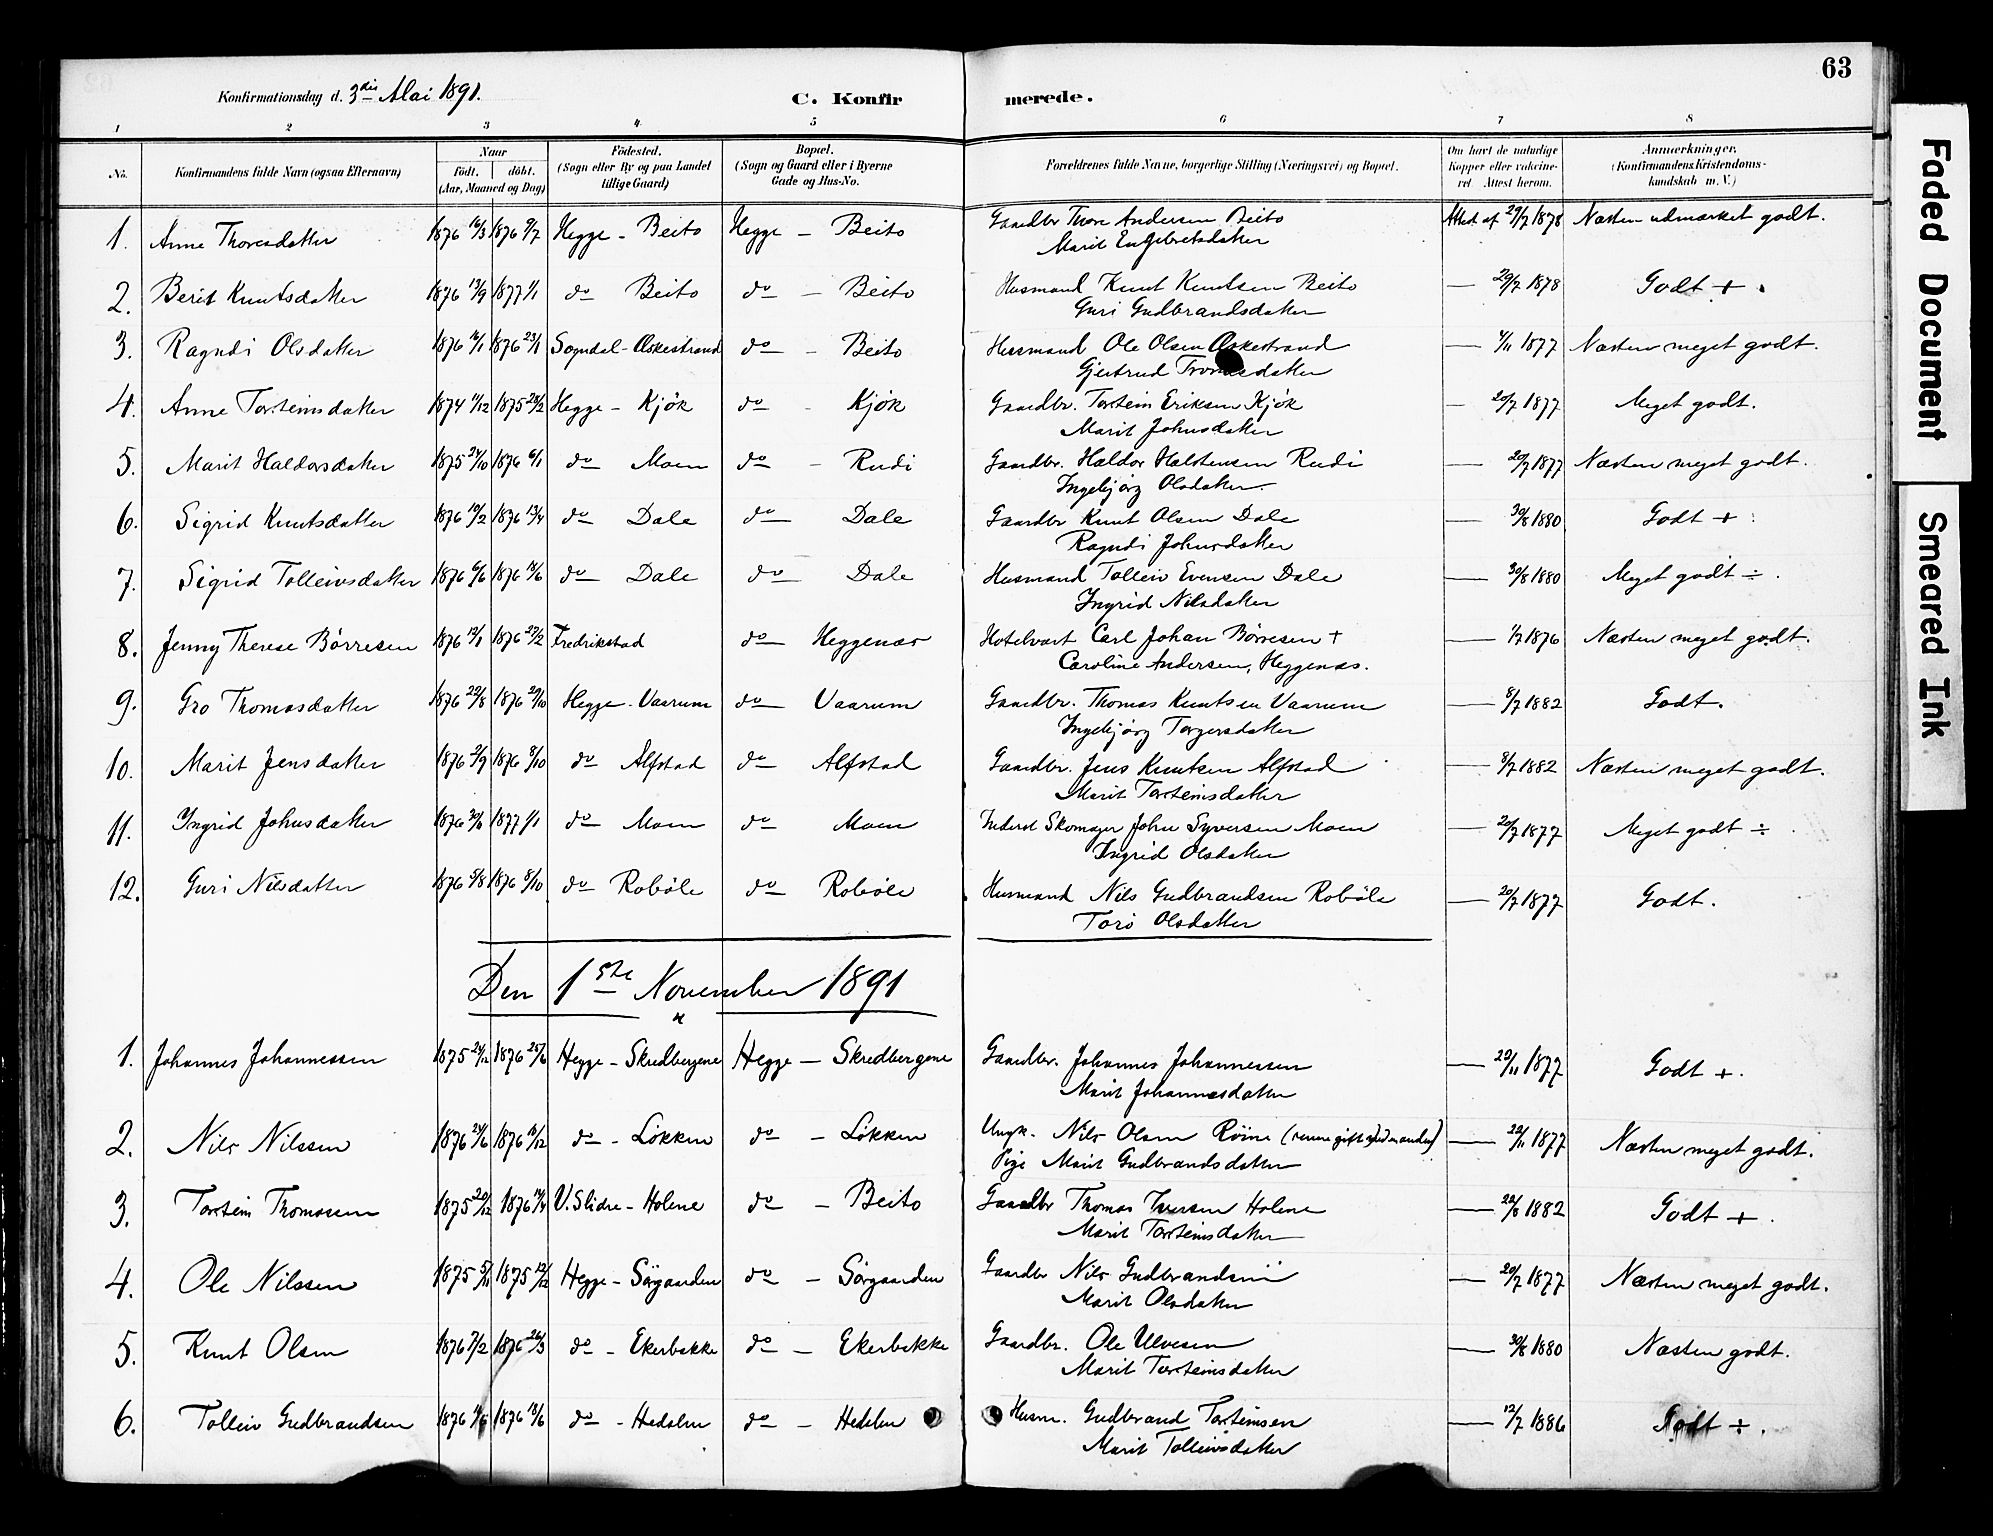 63
Konfirmationsdag d. 3die Mai 1891.
C. Konfirmerede.
1 2 3 4. 5 6 7 8
No. Konfirmandens fulde Navn (ogsaa Efternavn) Naar født. døbt. (Aar, Maaned og Dag) Fødested. (Sogn eller By og paa Landet tillige Gaard) Bopæl. (Sogn og Gaard eller i Byerne Gade og Hus-No. Forældrenes fulde Navne, borgerlige Stilling (Næringsvei) og Bopæl. Om havt de naturlige Kopper eller vakcineret. Attest herom. Anmærkninger. (Konfirmandens Kristendomskundskab m. V.)
1. Anne Thoresdatter 1876 16/3 1876 9/7 Hegge - Beito Hegge - Beito Gaardbr Thore Andersen Beito Attest af 29/7 1878 Næsten udmærket godt.
Marit Engebretsdatter
2. Berit Knutsdatter 1876 13/9 1877 1/1 do Beito do - Beito Husmand Knut Knutsen Beito — 29/7 1878 Godt +.
Guri Gudbrandsdatter
3. Ragndi Olsdatter 1876 1876 23/1 Sogndal - Øskestrand do - Beito Husmand Ole Olsen Øskestrand — 1877 Næsten meget godt.
Gjertrud Tromsdatter
4. Anne Torsteinsdatter 1874 11/12 1875 28/2 Hegge - Kjøk do - Kjøk Gaardbr. Torstein Eriksen Kjøk — 20/7 1877 Meget godt.
Marit Johnsdatter
5. Marit Haldorsdatter 1875 24/10 1876 6/1 do Moen do - Rudi Gaardbr. Haldor Halstensen Rudi — 20/7 1877 Næsten meget godt.
Ingebjørg Olsdatter.
6. Sigrid Knutsdatter 1876 19/2 1876 13/4 do Dale do Dale Gaardbr Knut Olsen Dale — 30/8 1880 Godt +
Ragndi Johnsdatter
7. Sigrid Tolleivsdatter 1876 6/6 1876 18/6 do Dale do Dale Husmand Tolleiv Evensen Dale — 30/8 1880 Meget godt ÷.
Ingrid Nilsdatter
8. Jenny Therese Børresen 1876 12/1 1876 27/2 Fredrikstad do Heggenæs Hotelvært Carl Johan Børresen + — 1/7 1876 Næsten meget godt.
Caroline Andersen, Heggenæs.
9. Gro Thomasdatter 1876 22/8 1876 29/10 Hegge - Vaarum do Vaarum Gaardbr. Thomas Knutsen Vaarum — 8/7 1882 Godt.
Ingebjørg Torgersdatter
10. Marit Jensdatter 1876 2/9 1876 8/10 do Alfstad do Alfstad Gaardbr. Jens Knutsen Alfstad — 8/7 1882 Næsten meget godt.
Marit Torsteinsdatter
11. Ingrid Johnsdatter 1876 1877 1/1 do Moen do Moen Inderst Skomager John Syversen Moen — 20/7 1877 Meget godt ÷
Ingrid Olsdatter
12. Guri Nilsdatter 1876 5/8 1876 8/10 do Robøle do Robøle Husmand Nils Gudbrandsen Robøle — 20/7 1877 Godt.
Torø Olsdatter
Den 1ste November 1891
1. Johannes Johannessen 1875 24/12 1876 25/6 Hegge - Skredbergene Hegge - Skredbergene Gaardbr. Johannes Johannessen — 29/11 1877 Godt +.
Marit Johannesdatter
2. Nils Nilssen 1876 24/6 1876 do - Løkken do - Løkken Ungk. Nils Olsen Røine (senere gift med anden) — 22/11 1877 Næsten meget godt.
Pige Marit Gudbrandsdatter
3. Torstein Thomassen 1875 20/12 1876 V. Slidre - Holene do - Beito Gaardbr Thomas Iversen Holene — 22/6 1882 Godt +.
Marit Torsteinsdatter
4. Ole Nilssen 1875 5/11 1875 12/12 Hegge - Sørgaarden do - Sørgaarden Gaardbr Nils Gudbrandsen — 20/7 1877 Næsten meget godt.
Marit Olsdatter
5. Knut Olsen 1876 7/2 1876 26/3 do - Ekerbakke do - Ekerbakke Gaardbr. Ole Ulvesen — 30/8 1880 Næsten godt.
Marit Torsteinsdatter
6. Tolleiv Gudbrandsen 1876 1876 18/6 do - Hedalen do - Hedalen Husm. Gudbrand Torsteinsen — 12/7 1886 Godt ÷.
Marit Tolleivsdatter
Faded Document
Smeared Ink